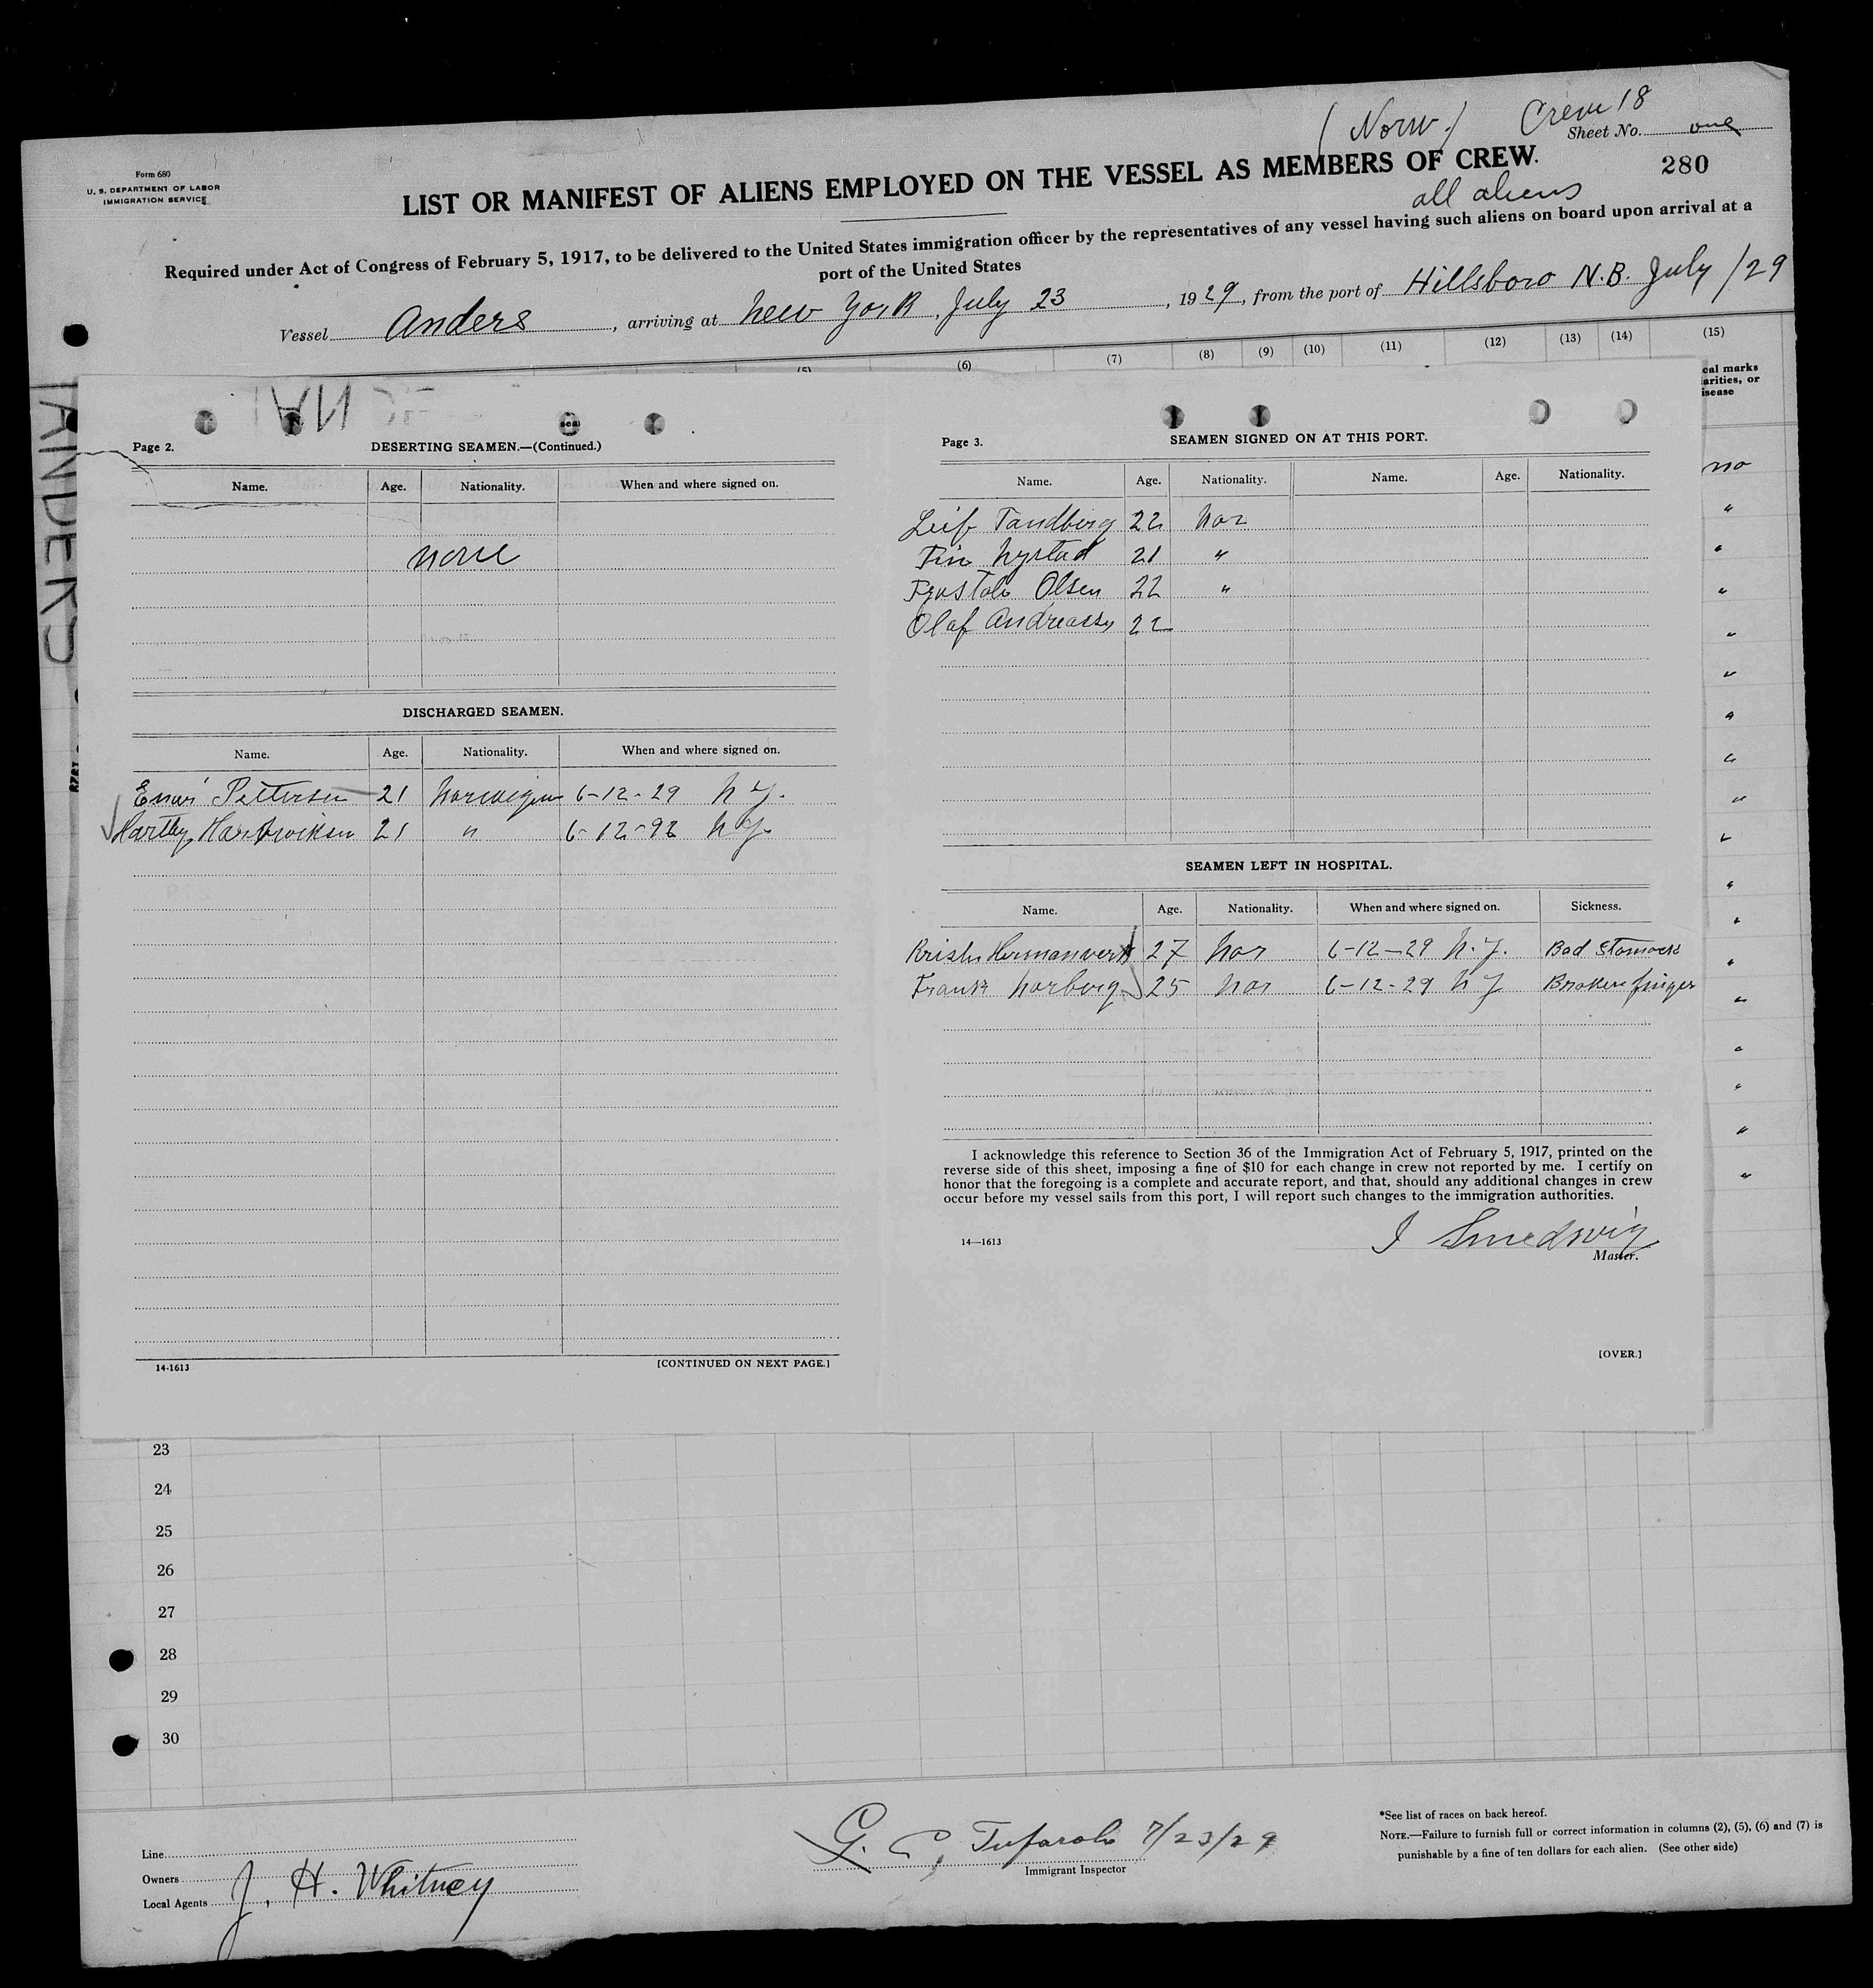 (Norw.) Crew 18
Sheet No. one
Form 680
U. S. DEPARTMENT OF LABOR
IMMIGRATION SERVICE
LIST OR MANIFEST OF ALIENS EMPLOYED ON THE VESSEL AS MEMBERS OF CREW.
280
all aliens
Required under Act of Congress of February 5, 1917, to be delivered to the United States immigration officer by the representatives of any vessel having such aliens on board upon arrival at a
port of the United States
Vessel Anders, arriving at New York, July 23, 1929, from the port of Hillsboro N.B. July /29
(5) (6) (7) (8) (9) (10) (11) (12) (13) (14) (15)
cal marks
arities, or
isease
no
ANDERS
Page 2.
DESERTING SEAMEN.—(Continued.)
Name. Age. Nationality. When and where signed on.
none
DISCHARGED SEAMEN.
Name. Age. Nationality. When and where signed on.
Pettersen 21 Norwegian 6-12-29 N Y.
Hartby 21 " 6-12-92 N Y.
14-1613
[CONTINUED ON NEXT PAGE.]
Page 3.
SEAMEN SIGNED ON AT THIS PORT.
Name. Age. Nationality. Name. Age. Nationality.
Leif Tandberg 22 Nor
Nystad 21 "
Olsen 22 "
Olaf 22
SEAMEN LEFT IN HOSPITAL.
Name. Age. Nationality. When and where signed on. Sickness.
27 Nor 6-12-29 N.Y. Bad Stomack
Frank Norberg 25 Nor 6-12-29 N Y Broken finger
I acknowledge this reference to Section 36 of the Immigration Act of February 5, 1917, printed on the
reverse side of this sheet, imposing a fine of $10 for each change in crew not reported by me. I certify on
honor that the foregoing is a complete and accurate report, and that, should any additional changes in crew
occur before my vessel sails from this port, I will report such changes to the immigration authorities.
I Smedsvig
14—1613
Master.
[OVER.]
23
24
25
26
27
28
29
30
Line
Owners
Local Agents J. H. Whitney
G. C. Tufarolo 7/23/29
Immigrant Inspector
*See list of races on back hereof.
NOTE.—Failure to furnish full or correct information in columns (2), (5), (6) and (7) is
punishable by a fine of ten dollars for each alien. (See other side)